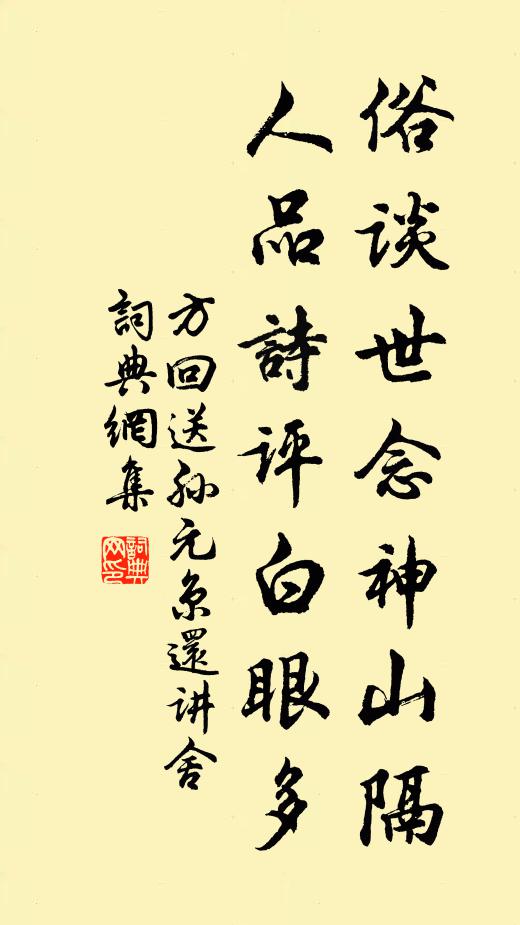 俗谈世念神山隔
人品詩评白眼多
方回送孙元京還讲舍
詞典網集
詞典網印